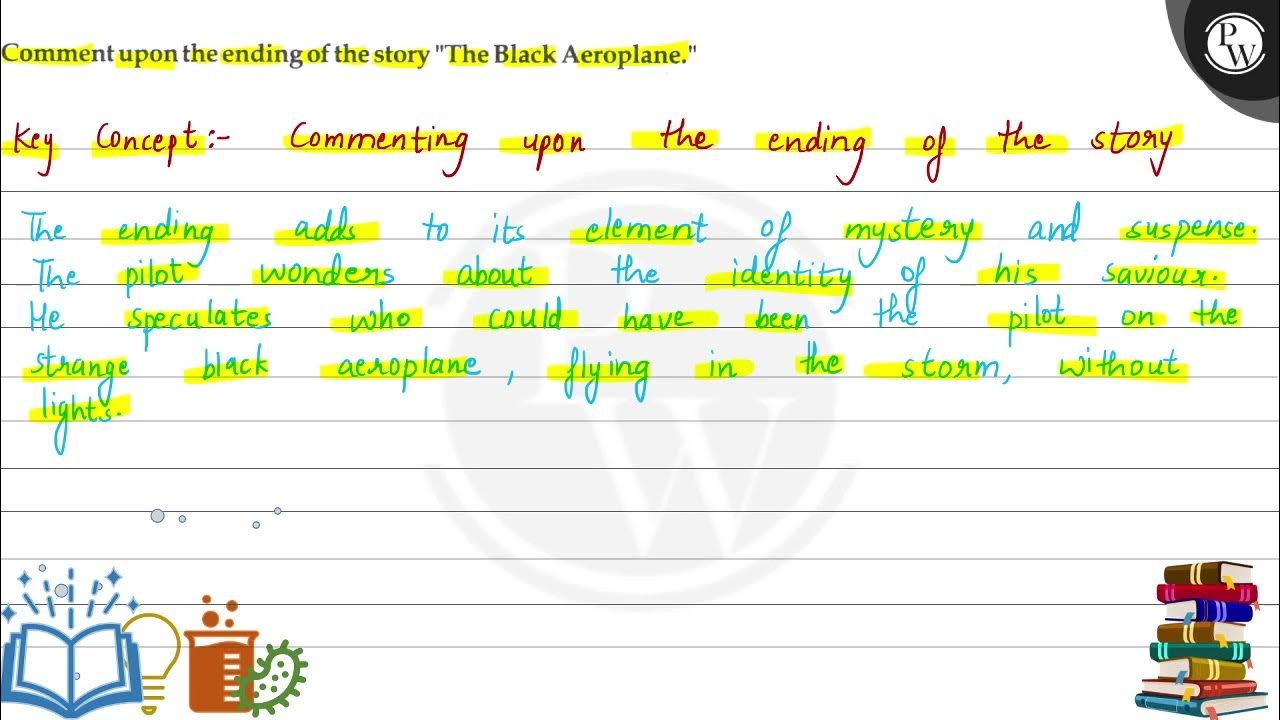 Comment upon the ending of the story "The Black Aeroplane."
PW
Key Concept:- Commenting upon the ending of the story
The ending adds to its element of mystery and suspense.
The pilot wonders about the identity of his saviour.
He speculates who could have been the pilot on the
strange black aeroplane, flying in the storm, without
lights.
PW